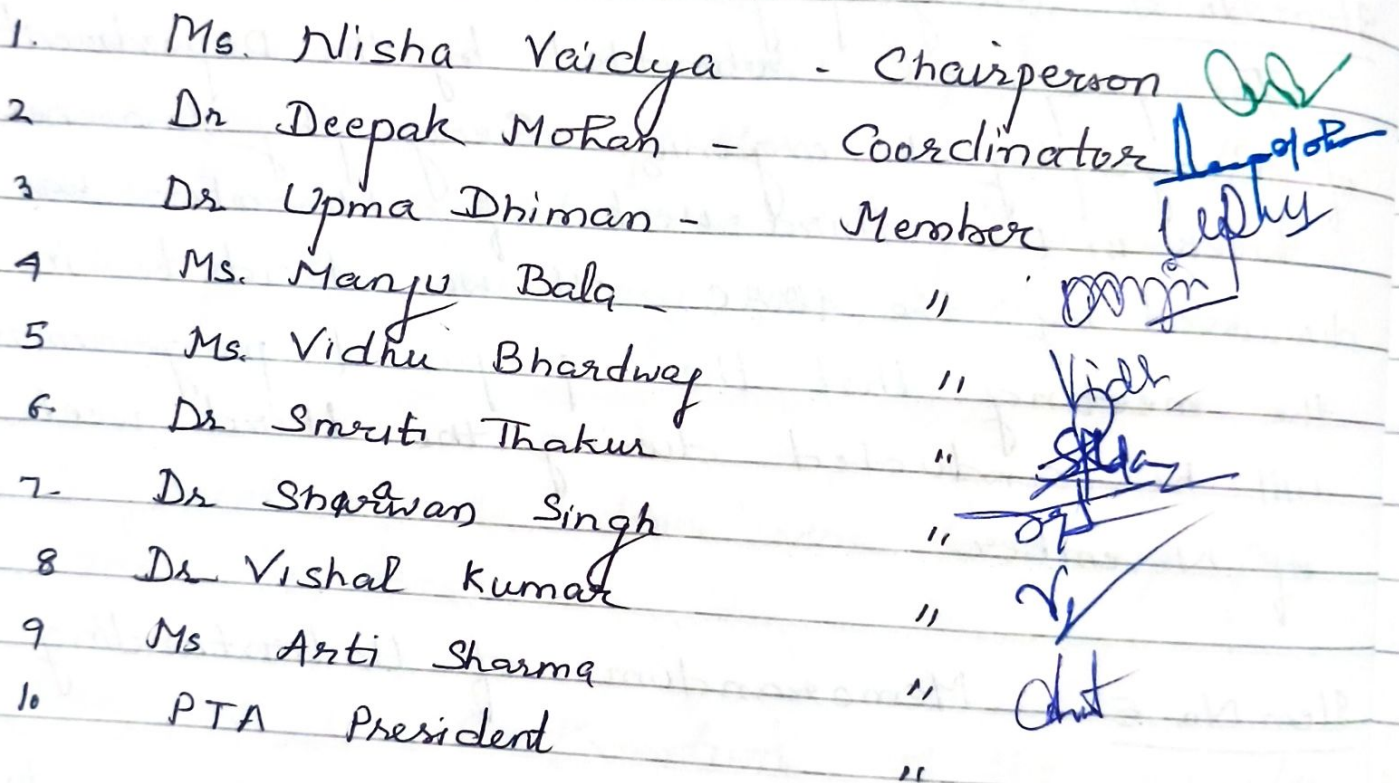 1. Ms. Nisha Vaidya - Chairperson
2 Dr Deepak Mohan - Coordinator
3 Dr Upma Dhiman - Member
4 Ms. Manju Bala - "
5 Ms. Vidhu Bhardwaj "
6. Dr Smruti Thakur "
7. Dr Sharwan Singh "
8 Dr Vishal Kumar "
9 Ms Arti Sharma "
10 PTA President "